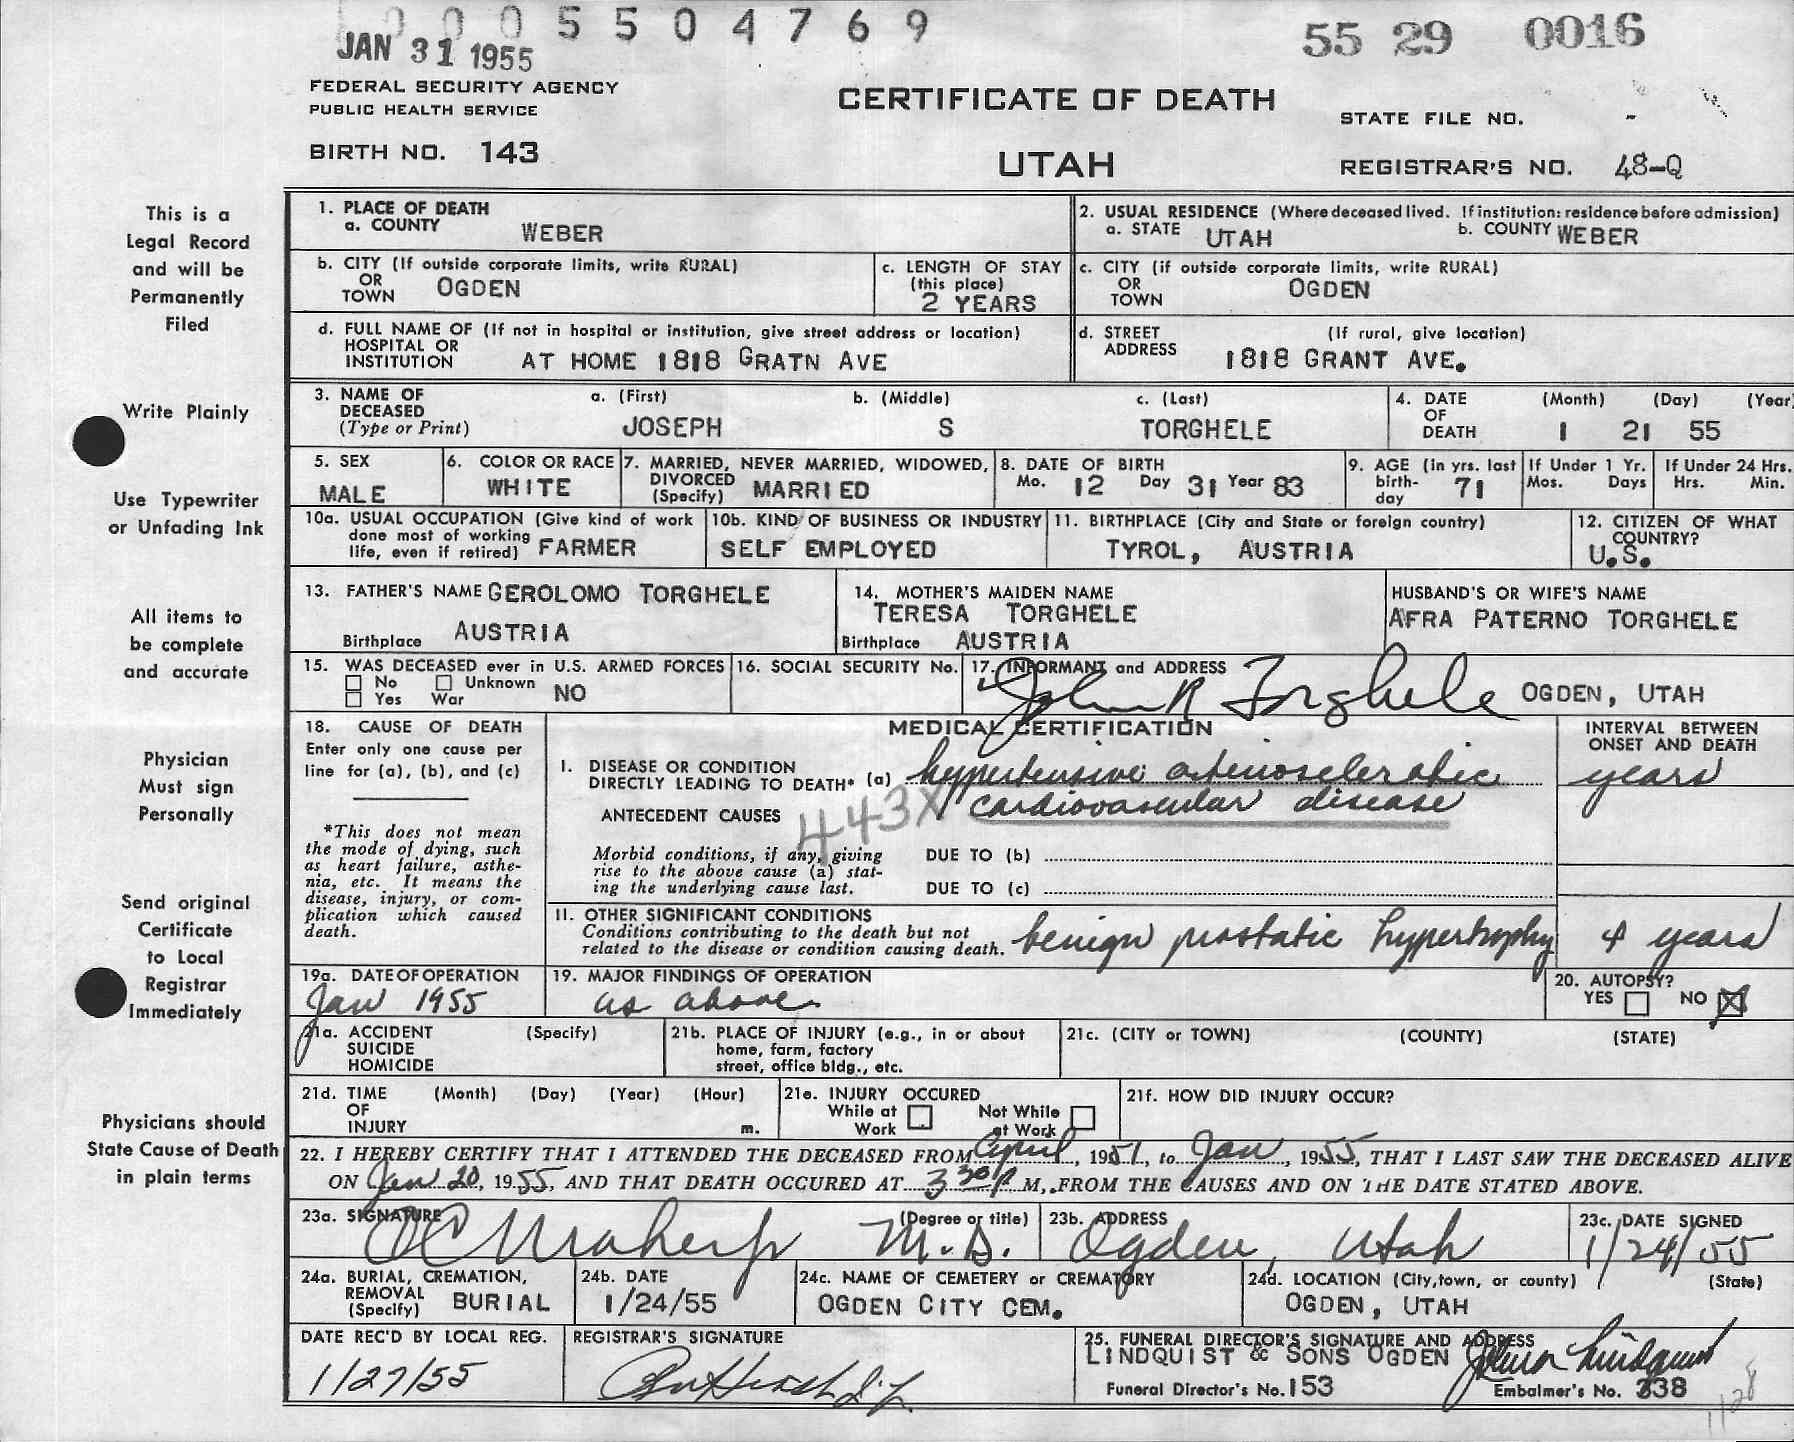 0005504769
JAN 31 1955
55 29 0016
FEDERAL SECURITY AGENCY
PUBLIC HEALTH SERVICE
CERTIFICATE OF DEATH
STATE FILE NO. -
BIRTH NO. 143
UTAH
REGISTRAR'S NO. 48-Q
This is a
Legal Record
and will be
Permanently
Filed
Write Plainly
Use Typewriter
or Unfading Ink
All items to
be complete
and accurate
Physician
Must sign
Personally
Send original
Certificate
to Local
Registrar
Immediately
Physicians should
State Cause of Death
in plain terms
1. PLACE OF DEATH
a. COUNTY WEBER
2. USUAL RESIDENCE (Where deceased lived. If institution: residence before admission)
a. STATE UTAH b. COUNTY WEBER
b. CITY (If outside corporate limits, write RURAL)
OR
TOWN OGDEN
c. LENGTH OF STAY
(this place)
2 YEARS
c. CITY (if outside corporate limits, write RURAL)
OR
TOWN OGDEN
d. FULL NAME OF (If not in hospital or institution, give street address or location)
HOSPITAL OR
INSTITUTION AT HOME 1818 GRATN AVE
d. STREET (If rural, give location)
ADDRESS 1818 GRANT AVE.
3. NAME OF
DECEASED
(Type or Print)
a. (First) b. (Middle) c. (Last)
JOSEPH S TORGHELE
4. DATE
OF
DEATH
(Month) (Day) (Year
1 21 55
5. SEX
MALE
6. COLOR OR RACE
WHITE
7. MARRIED, NEVER MARRIED, WIDOWED,
DIVORCED
(Specify) MARRIED
8. DATE OF BIRTH
Mo. 12 Day 31 Year 83
9. AGE (in yrs. last
birth-
day 71
If Under 1 Yr.
Mos. Days
If Under 24 Hrs.
Hrs. Min.
10a. USUAL OCCUPATION (Give kind of work
done most of working
life, even if retired) FARMER
10b. KIND OF BUSINESS OR INDUSTRY
SELF EMPLOYED
11. BIRTHPLACE (City and State or foreign country)
TYROL, AUSTRIA
12. CITIZEN OF WHAT
COUNTRY?
U.S.
13. FATHER'S NAME GEROLOMO TORGHELE
Birthplace AUSTRIA
14. MOTHER'S MAIDEN NAME
TERESA TORGHELE
Birthplace AUSTRIA
HUSBAND'S OR WIFE'S NAME
AFRA PATERNO TORGHELE
15. WAS DECEASED ever in U.S. ARMED FORCES
No Unknown NO
Yes War
16. SOCIAL SECURITY No.
17. INFORMANT and ADDRESS
John R Torghele OGDEN, UTAH
18. CAUSE OF DEATH
Enter only one cause per
line for (a), (b), and (c)
*This does not mean
the mode of dying, such
as heart failure, asthe-
nia, etc. It means the
disease, injury, or com-
plication which caused
death.
MEDICAL CERTIFICATION
INTERVAL BETWEEN
ONSET AND DEATH
I. DISEASE OR CONDITION
DIRECTLY LEADING TO DEATH* (a) hypertensive arteriosclerotic years
ANTECEDENT CAUSES 443X cardiovascular disease
Morbid conditions, if any, giving
rise to the above cause (a) stat-
ing the underlying cause last.
DUE TO (b)
DUE TO (c)
II. OTHER SIGNIFICANT CONDITIONS
Conditions contributing to the death but not
related to the disease or condition causing death. benign prostatic hypertrophy 4 years
19a. DATE OF OPERATION
Jan 1955
19. MAJOR FINDINGS OF OPERATION
as above
20. AUTOPSY?
YES NO X
21a. ACCIDENT (Specify)
SUICIDE
HOMICIDE
21b. PLACE OF INJURY (e.g., in or about
home, farm, factory
street, office bldg., etc.
21c. (CITY or TOWN) (COUNTY) (STATE)
21d. TIME (Month) (Day) (Year) (Hour)
OF
INJURY m.
21e. INJURY OCCURED
While at Work Not While at Work
21f. HOW DID INJURY OCCUR?
22. I HEREBY CERTIFY THAT I ATTENDED THE DECEASED FROM April, 1951, to Jan, 1955, THAT I LAST SAW THE DECEASED ALIVE
ON Jan 20, 1955, AND THAT DEATH OCCURED AT 3 30 P M, FROM THE CAUSES AND ON THE DATE STATED ABOVE.
23a. SIGNATURE (Degree or title)
M.D.
23b. ADDRESS
Ogden, Utah
23c. DATE SIGNED
1/24/55
24a. BURIAL, CREMATION,
REMOVAL
(Specify) BURIAL
24b. DATE
1/24/55
24c. NAME OF CEMETERY or CREMATORY
OGDEN CITY CEM.
24d. LOCATION (City, town, or county) (State)
OGDEN, UTAH
DATE REC'D BY LOCAL REG.
1/27/55
REGISTRAR'S SIGNATURE
25. FUNERAL DIRECTOR'S SIGNATURE AND ADDRESS
LINDQUIST & SONS OGDEN
Funeral Director's No. 153 Embalmer's No. 338
1/28